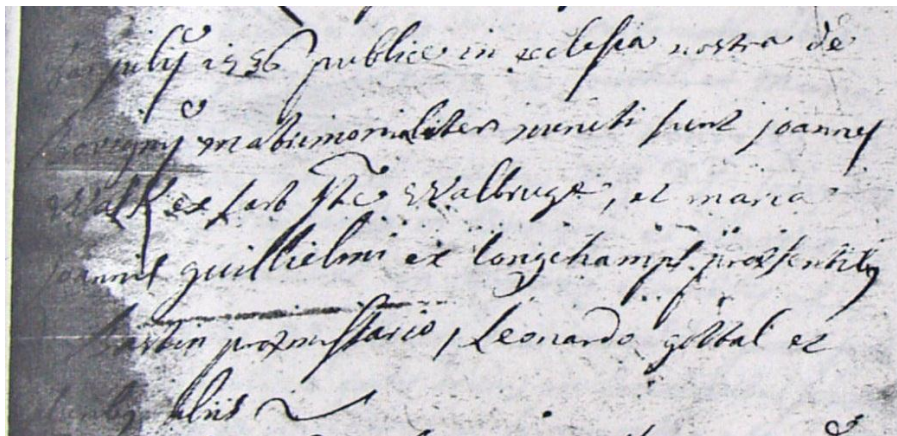 julij 1736 publice in ecclesia nostra de
bovigny matrimonialiter juncti sunt joannes
ex farb Stæ Walbruge, et maria
joannis guillielmi ex longchamps præsentibus
bastin præmissario, Leonardo gottal et
aliis